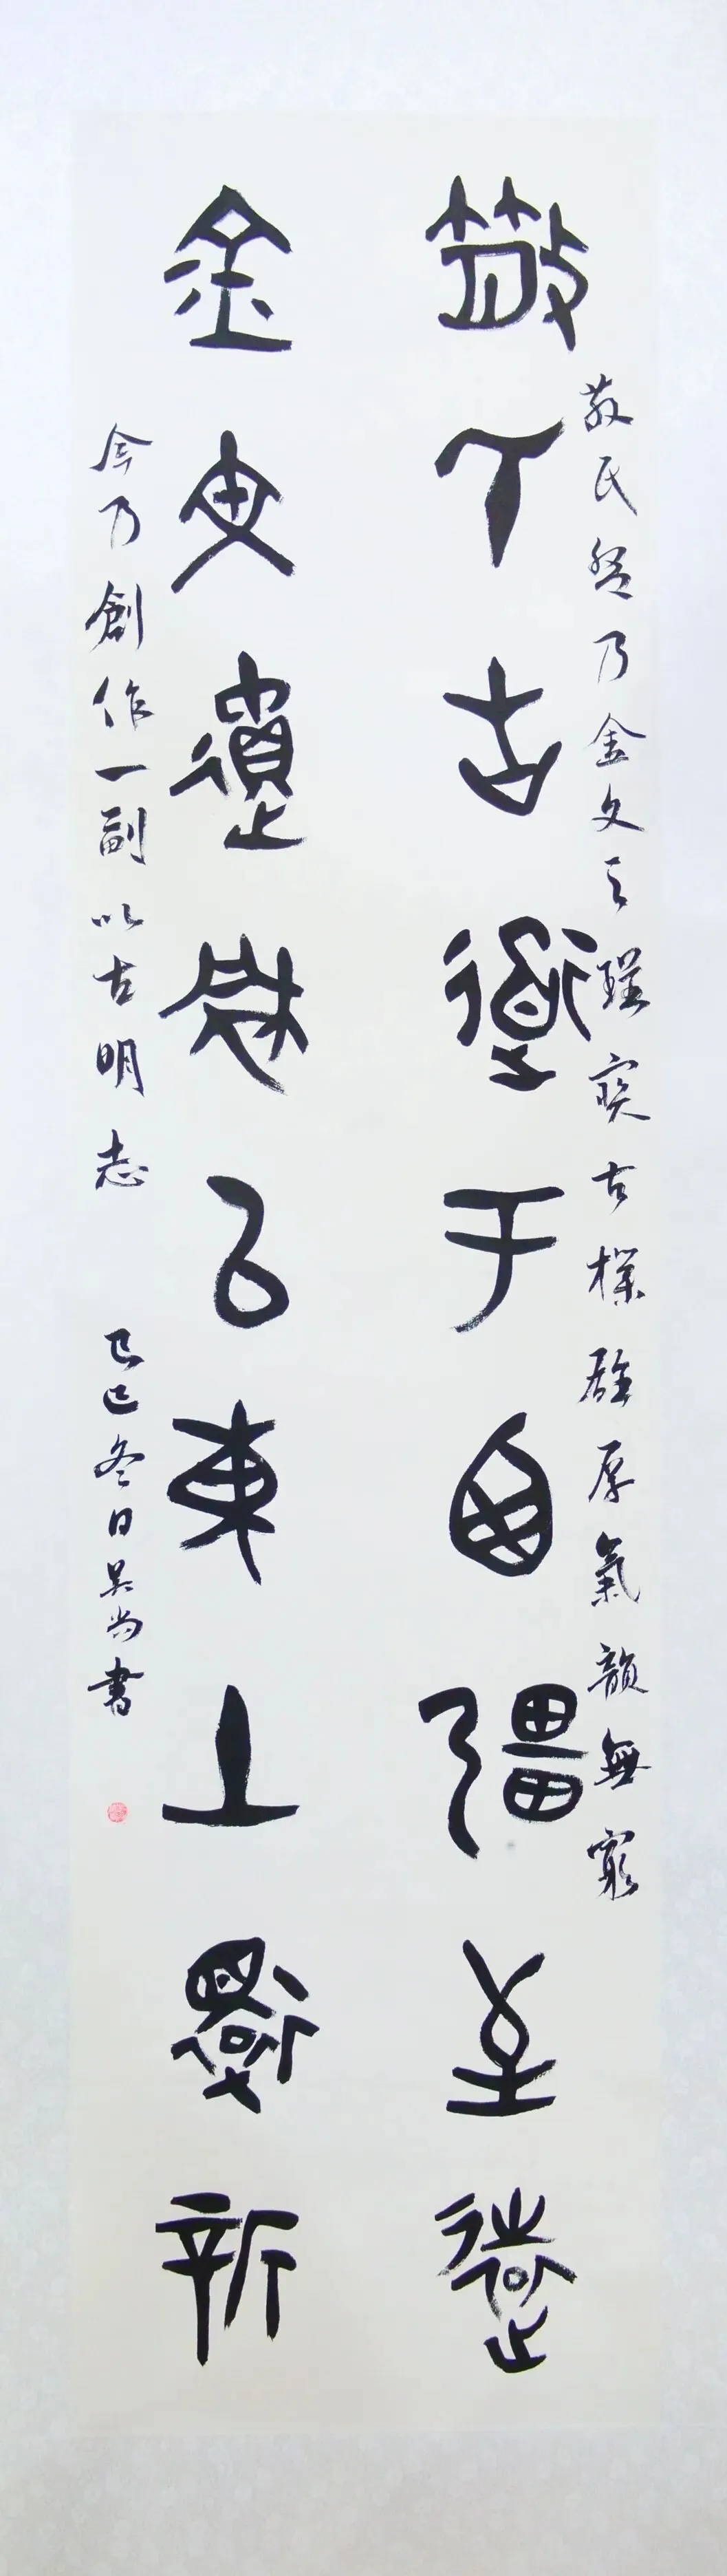 散氏盤乃金文之瑰寶古樸雄厚氣韻無窮
散氏古道于自彊至遠
金文遺我以東土還新
今乃創作一副以古明志 乙巳冬日吴尚書